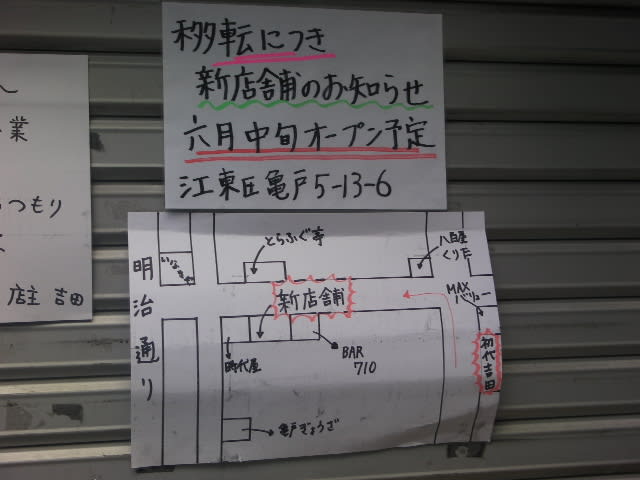 移転につき
新店舗のお知らせ
六月中旬オープン予定
江東区亀戸5-13-6
業
つもり
店主 吉田
明治通り
とらふぐ亭
八百屋
くりた
新店舗
MAX
バリュー
初代吉田
時代屋
BAR
710
亀戸ぎょうざ